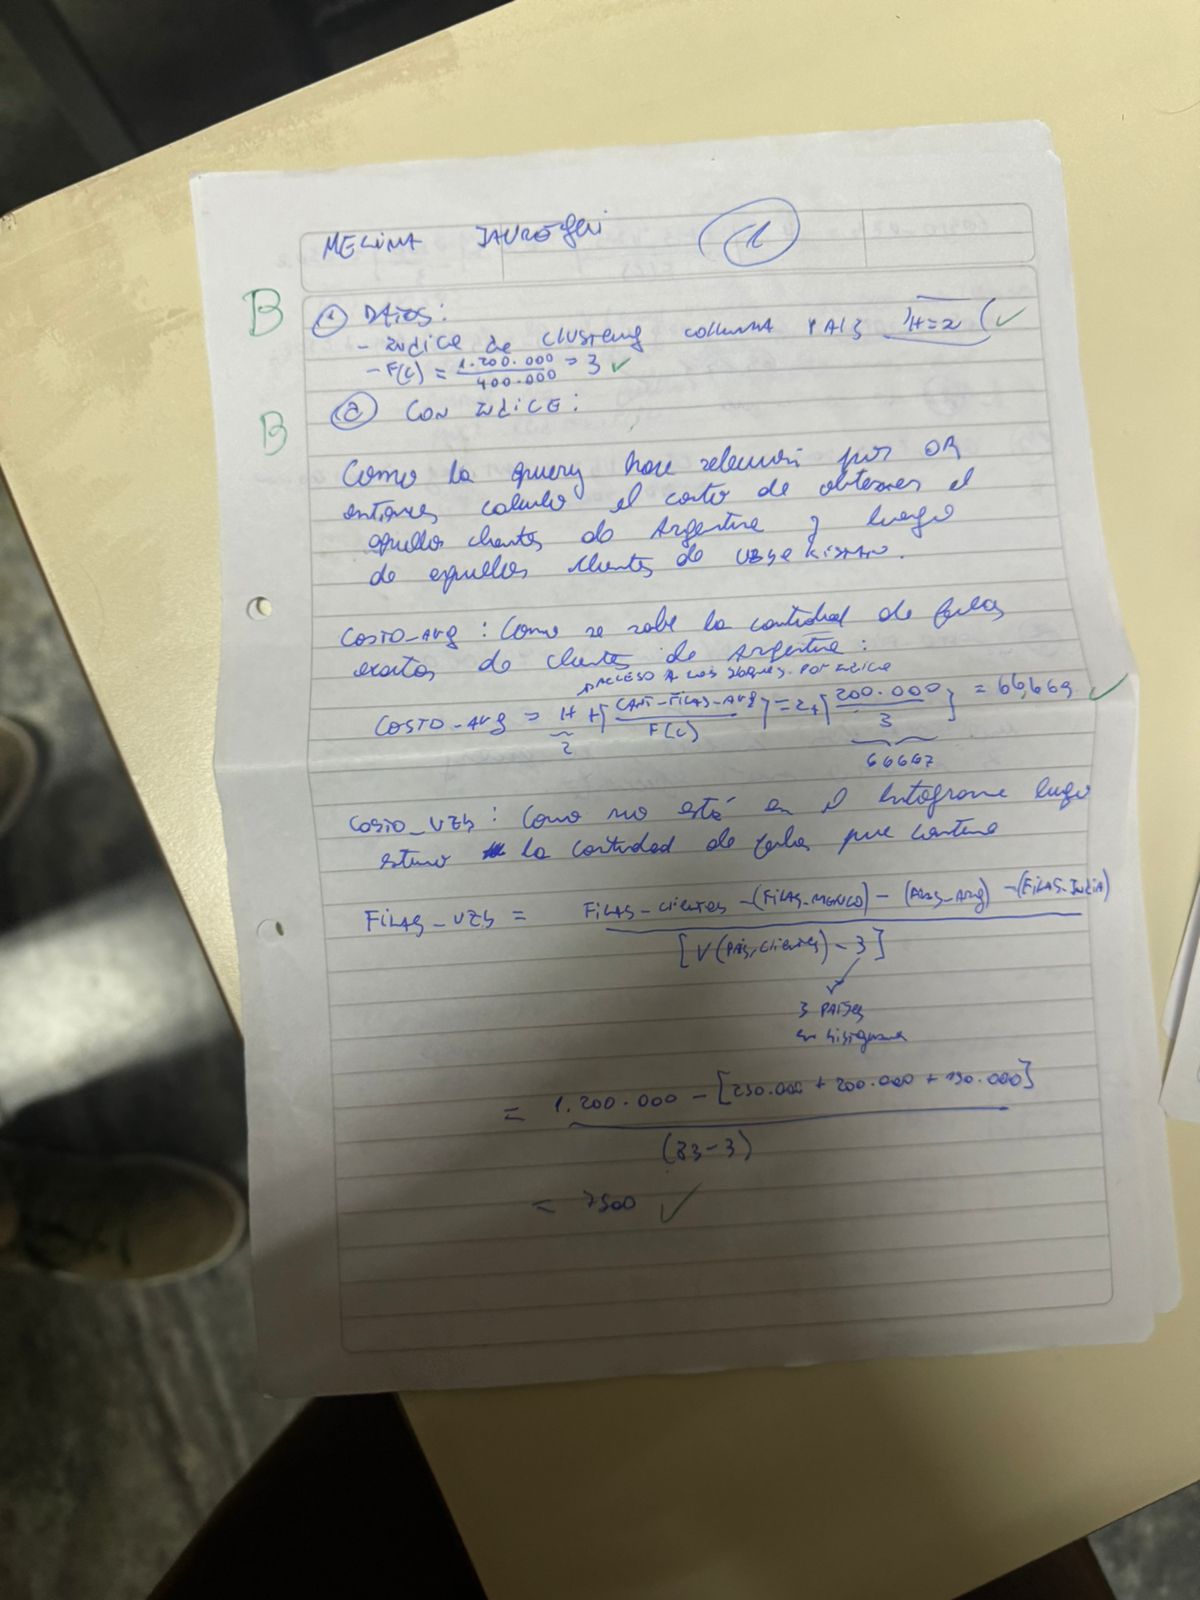 MELINA
1
B
① DATOS:
- INDICE DE CLUSTERING COLUMNA PAIS H=2 ✓
- F(C) = 1.200.000 / 400.000 = 3 ✓
B
ⓐ CON INDICE:
Como la query hace selección por OR
entonces calculo el costo de obtener el
aquellos clientes de Argentina y luego
de aquellos clientes de Uzbekistan.
COSTO_ARG : Como se sabe la cantidad de filas
exactas de clientes de Argentina :
ACCESO A LOS BLOQUES POR INDICE
COSTO_ARG = H + ⌈CANT_FILAS_ARG / F(C)⌉ = 2 + ⌈200.000 / 3⌉ = 66,669 ✓
2
66667
COSTO_UZB : Como no está en el histograma luego
estimo la cantidad de filas que contiene
FILAS_UZB = FILAS_CLIENTES - (FILAS_MEXICO) - (FILAS_ARG) - (FILAS_INDIA) / [V(PAIS, CLIENTES) - 3]
3 PAISES
en histograma
= 1.200.000 - [250.000 + 200.000 + 150.000] / (83-3)
= 7500 ✓